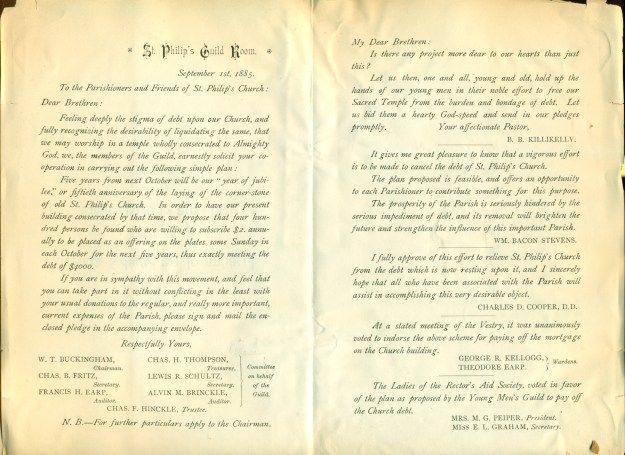 St. Philip's Guild Room.
September 1st, 1885.
To the Parishioners and Friends of St. Philip's Church:
Dear Brethren:
Feeling deeply the stigma of debt upon our Church, and
fully recognizing the desirability of liquidating the same, that
we may worship in a temple wholly consecrated to Almighty
God, we, the members of the Guild, earnestly solicit your co-
operation in carrying out the following simple plan:
Five years from next October will be our "year of jubi-
lee," or fiftieth anniversary of the laying of the corner-stone
of old St. Philip's Church. In order to have our present
building consecrated by that time, we propose that four hun-
dred persons be found who are willing to subscribe $2. annu-
ally to be placed as an offering on the plates some Sunday in
each October for the next five years, thus exactly meeting the
debt of $4000.
If you are in sympathy with this movement, and feel that
you can take part in it without conflicting in the least with
your usual donations to the regular, and really more important,
current expenses of the Parish, please sign and mail the en-
closed pledge in the accompanying envelope.
Respectfully Yours,
W. T. BUCKINGHAM,
Chairman.
CHAS. B. FRITZ,
Secretary.
FRANCIS H. EARP,
Auditor.
CHAS. H. THOMPSON,
Treasurer.
LEWIS R. SCHULTZ,
Secretary.
ALVIN M. BRINCKLE,
Auditor.
CHAS. F. HINCKLE, Trustee.
Committee
on behalf
of the
Guild.
N. B.—For further particulars apply to the Chairman.
My Dear Brethren:
Is there any project more dear to our hearts than just
this?
Let us then, one and all, young and old, hold up the
hands of our young men in their noble effort to free our
Sacred Temple from the burden and bondage of debt. Let
us bid them a hearty God-speed and send in our pledges
promptly. Your affectionate Pastor,
B. B. KILLIKELLY.
It gives me great pleasure to know that a vigorous effort
is to be made to cancel the debt of St. Philip's Church.
The plan proposed is feasible, and offers an opportunity
to each Parishioner to contribute something for this purpose.
The prosperity of the Parish is seriously hindered by the
serious impediment of debt, and its removal will brighten the
future and strengthen the influence of this important Parish.
WM. BACON STEVENS.
I fully approve of this effort to relieve St. Philip's Church
from the debt which is now resting upon it, and I sincerely
hope that all who have been associated with the Parish will
assist in accomplishing this very desirable object.
CHARLES D. COOPER, D.D.
At a stated meeting of the Vestry, it was unanimously
voted to indorse the above scheme for paying off the mortgage
on the Church building.
GEORGE R. KELLOGG,
THEODORE EARP.
Wardens.
The Ladies of the Rector's Aid Society, voted in favor
of the plan as proposed by the Young Men's Guild to pay off
the Church debt.
MRS. M. G. PEIPER, President.
MISS E. L. GRAHAM, Secretary.